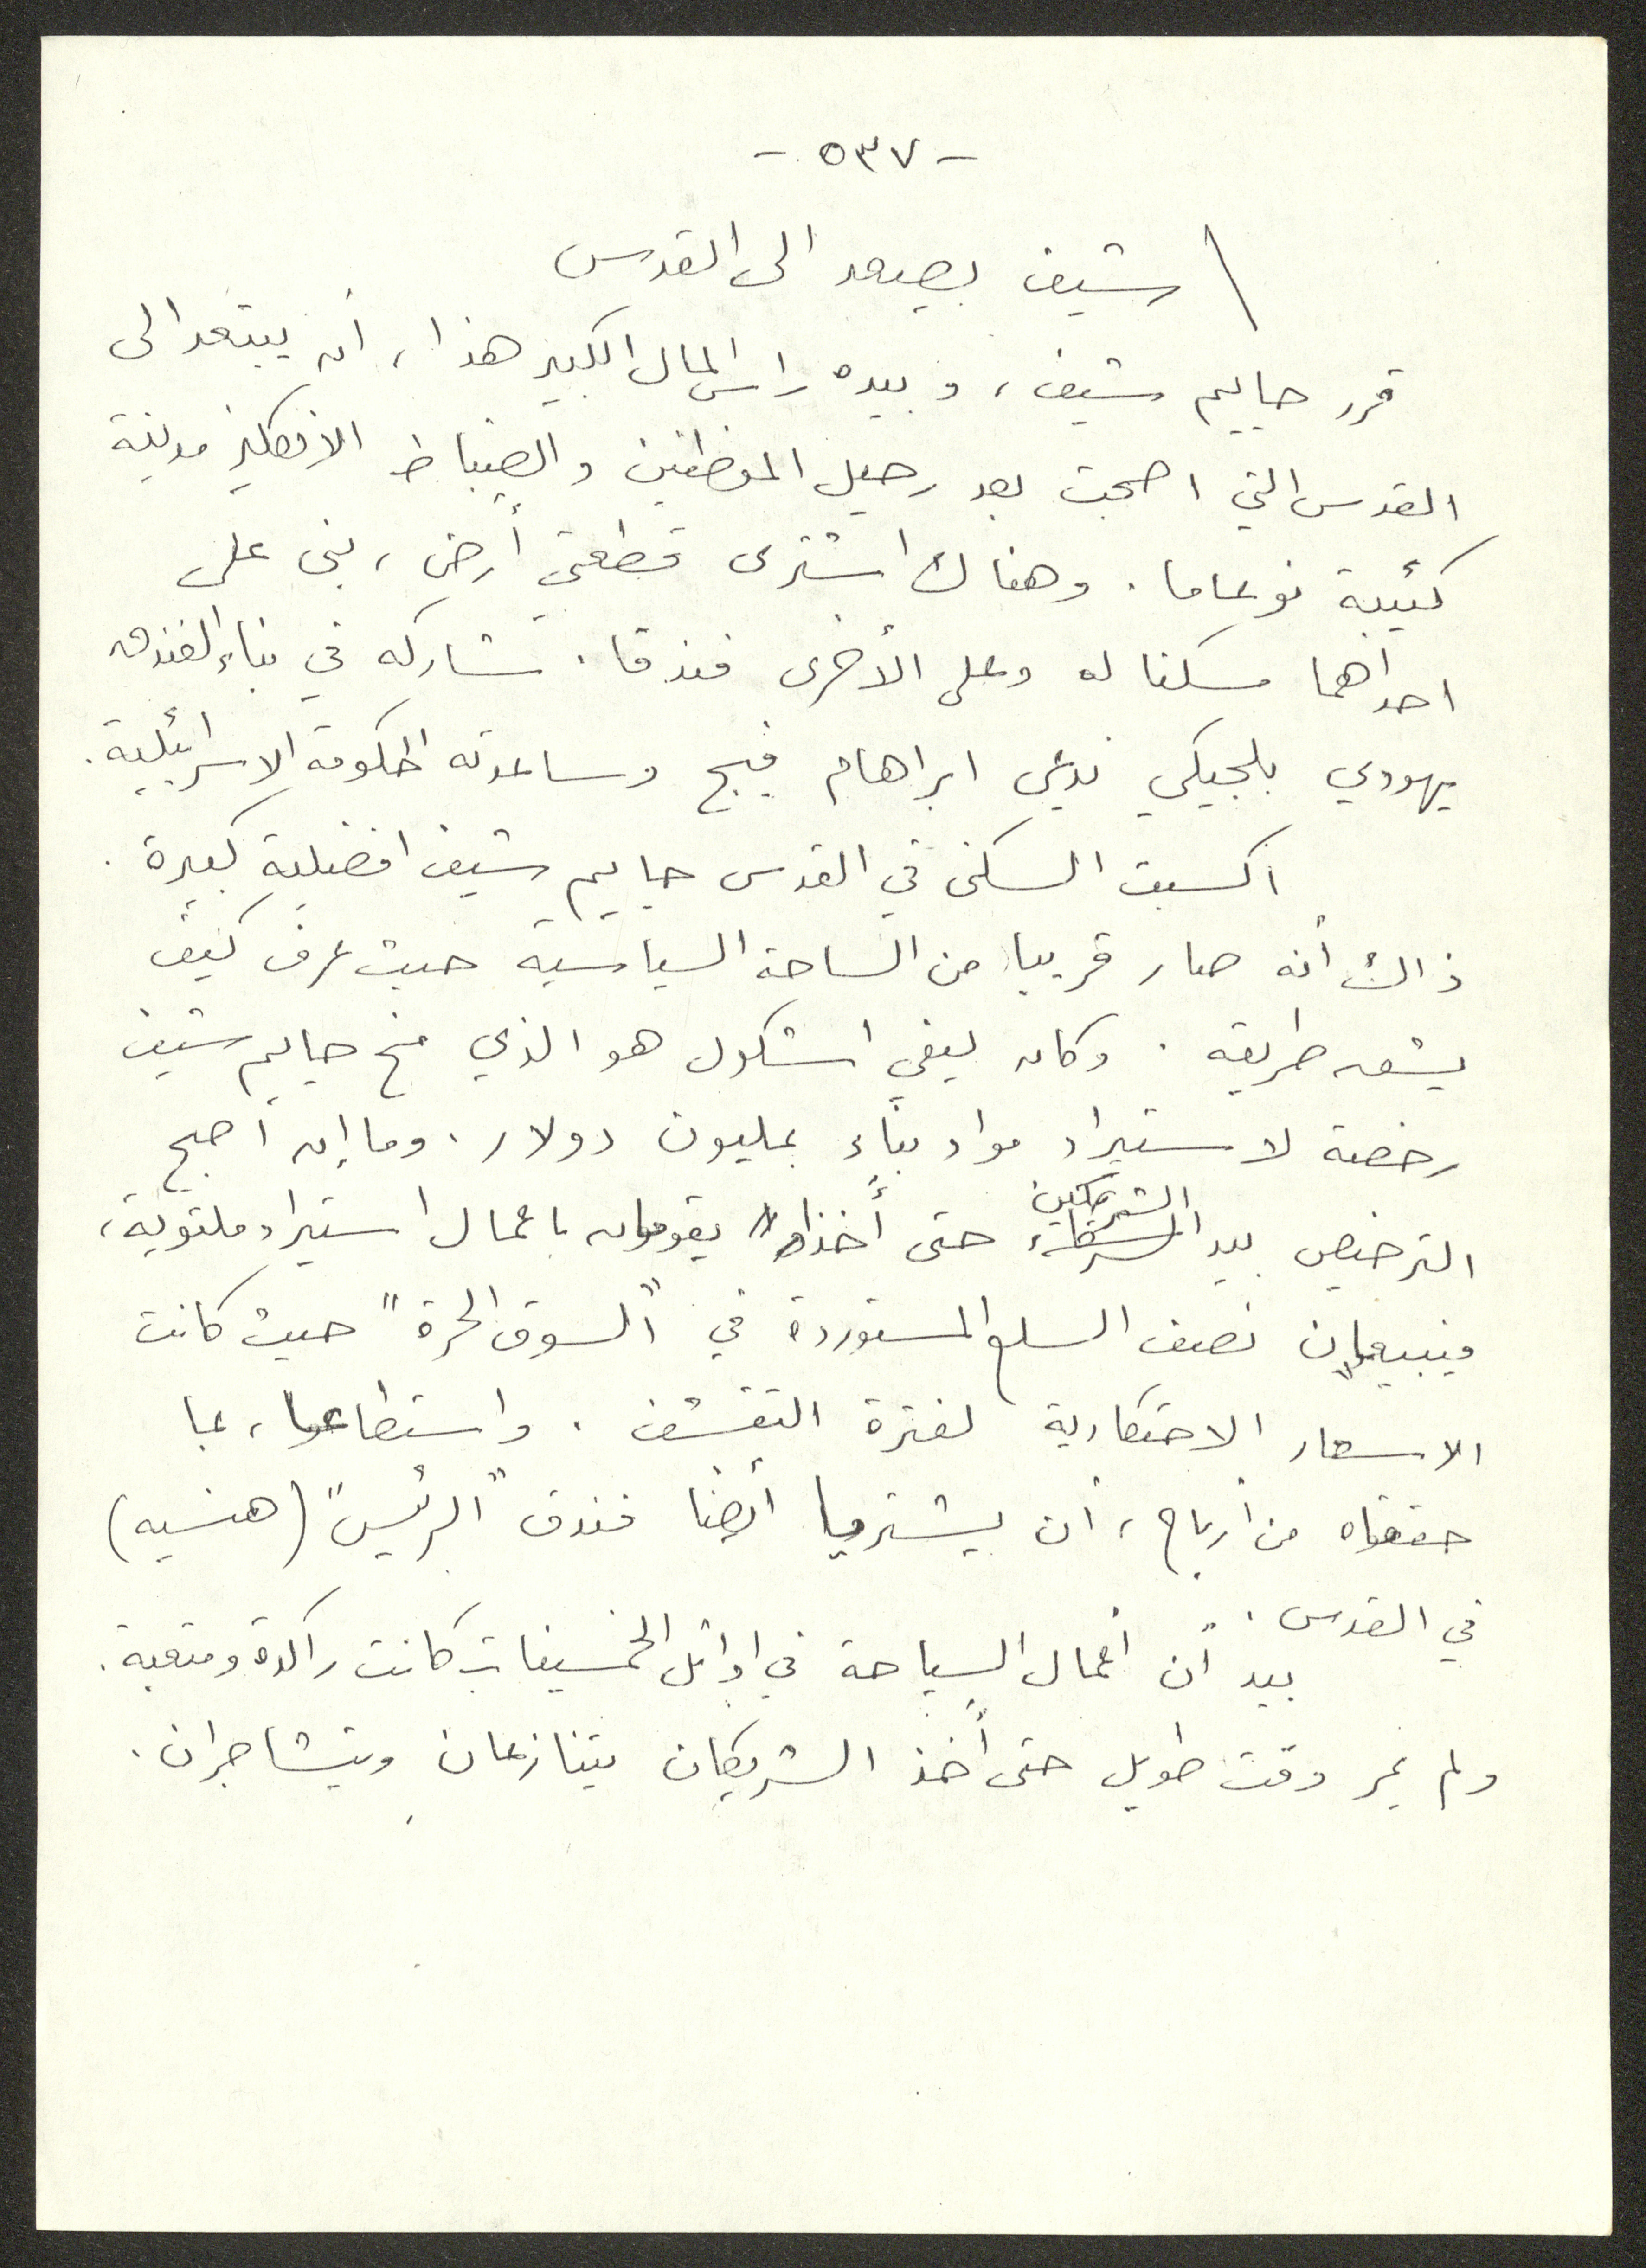 - ٥٣٧ -
شيف يصعد الى القدس
قرر حاييم شيف، وبيده راس المال الكبير هذا، أن يبتعد الى
القدس التي اصبحت بعد رحيل الموظفين والضباط الانكليز مدينة
كئيبة نوعا ما. وهناك اشترى قطعتي أرض، بنى على
احداهما مسكنا له وعلى الأخرى فندقا. شاركه في بناء الفندق
يهودي بلجيكي يدعى ابراهام فيج وساعدته الحكومة الاسرائيلية.
اكسبت السكنى في القدس حاييم شيف افضلية كبيرة.
ذاك أنه صار قريبا من الساحة السياسية حيث عرف كيف
يشق طريقه. وكان ليفي اشكول هو الذي منح حاييم شيف
رخصة لاستيراد مواد بناء بمليون دولار. وما إن اصبح
الترخيص بيد الشريكين حتى أخذا يقومان باعمال استيراد ملتوية،
فيبيعان نصف السلع المستوردة في "السوق الحرة" حيث كانت
الاسعار الاحتكارية لفترة التقشف. واستطاعا، بما
حققاه من أرباح، أن يشتريا أيضا فندق "الرئيس" (هنسيه)
في القدس.
بيد أن أعمال السياحة في اوائل الخمسينات كانت راكدة ومتعبة.
ولم يمر وقت طويل حتى أخذ الشريكان يتنازعان ويتشاجران.